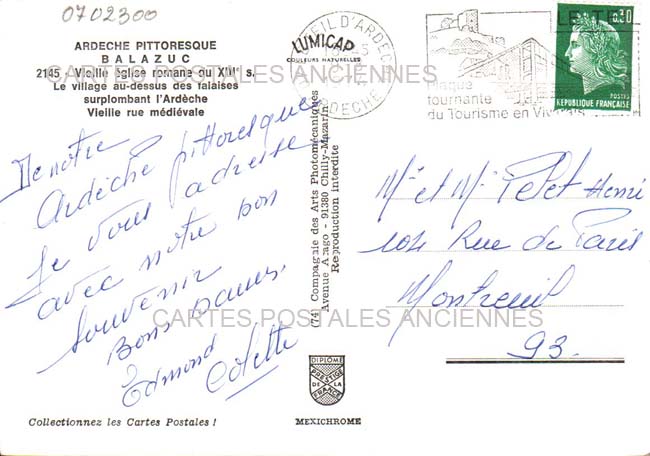 0702300
ARDECHE PITTORESQUE
BALAZUC
2145 - Vieille église romane du XIVe s.
Le village au-dessus des falaises
surplombant l'Ardèche
Vieille rue médiévale
LUMICAP
COULEURS NATURELLES
EIL D'ARDEC
ARDECHE
plaque
tournante
du Tourisme en Viv
0,30
POSTES
REPUBLIQUE FRANÇAISE
CARTES POSTALES ANCIENNES
De notre
Ardèche pittoresque
Je vous adresse
avec notre bon
souvenir
Bons
Edmond
Colette
(74) Compagnie des Arts Photomécaniques
Avenue Arago - 91380 Chilly-Mazarin
Reproduction interdite
Me et Mr Petet Henri
104 Rue de Paris
Montreuil
93.
CARTES POSTALES ANCIENNES
DIPLOME
PRESTIGE
DE LA
FRANCE
MEXICHROME
Collectionnez les Cartes Postales !